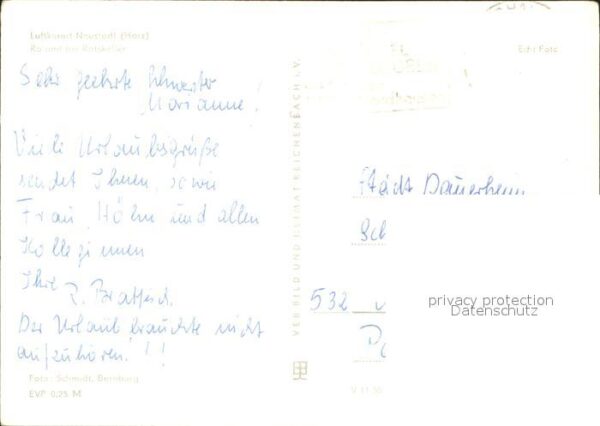 Luftkurort Neustadt (Harz)
Roland am Ratskeller
Echt Foto
Sehr geehrte Schwester
Marianne!
Viele Urlaubsgrüße
sendet Ihnen, sowie
Frau Höhn und allen
Kolleginnen
Ihre
Der Urlaub brauchte nicht
aufzuhören!!!
Foto: Schmidt, Bernburg
EVP 0,25 M
VEB BILD UND HEIMAT REICHENBACH i. V.
Städt Dauerheim
Sch
532
privacy protection
Datenschutz